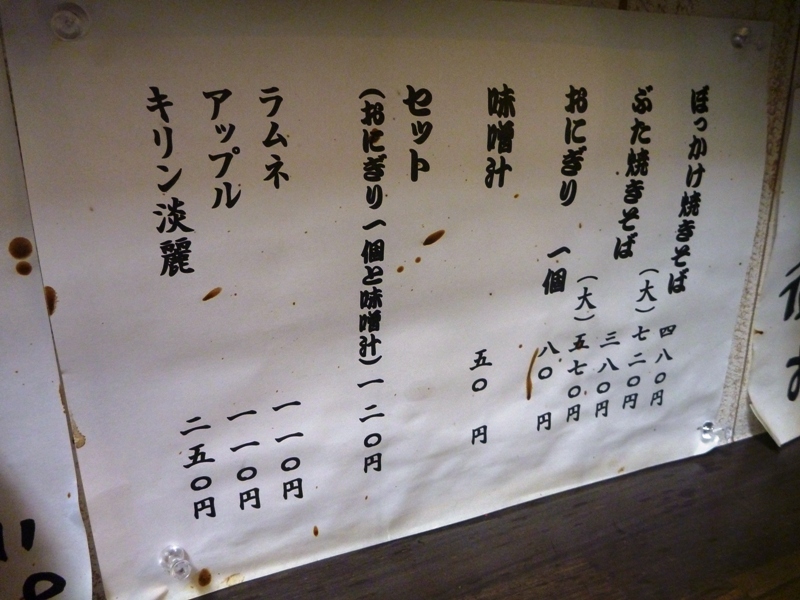 ぼっかけ焼きそば 四八〇円
(大) 七二〇円
ぶた焼きそば 三八〇円
(大) 五七〇円
おにぎり 一個 八〇円
味噌汁 五〇円
セット
(おにぎり一個と味噌汁) 一二〇円
ラムネ 一一〇円
アップル 一一〇円
キリン淡麗 二五〇円